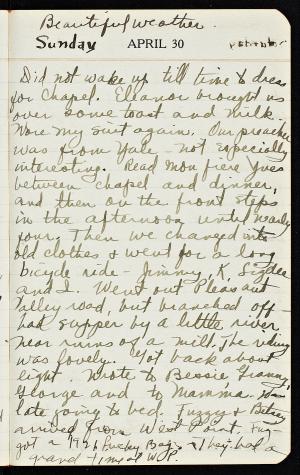 Beautiful weather.
Sunday APRIL 30
Did not wake up till time to dress
for Chapel. Eleanor brought us
over some toast and milk.
Wore my suit again. Our preacher
was from Yale - not especially
interesting. Read Mon frere Yves
between chapel and dinner,
and then on the front steps
in the afternoon until nearly
four. Then we changed into
old clothes & went for a long
bicycle ride - Jimmy, K,
and I. Went out Pleasant
Valley road, but branched off -
had supper by a little river
near ruins of a mill. The riding
was lovely. Got back about
eight. Wrote to Bessie, Granny,
George and to Mamma.
late going to bed. Fuzzy & Betsy
arrived from West Point. Fuz
got a Bag - They had a
grand time at W.P.